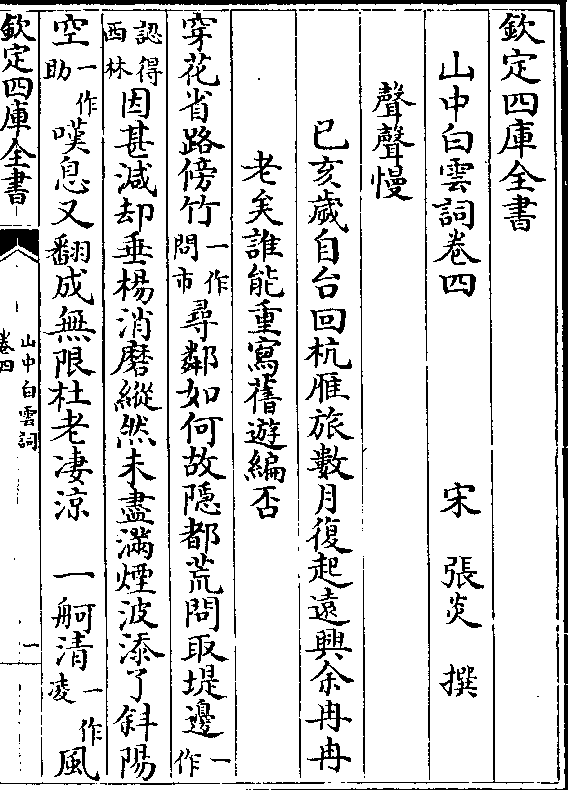 欽定四庫全書
山中白雲詞卷四 宋 張炎 撰
聲聲慢
已亥歲自台回杭雁旅數月復起遠興余冉冉
老矣誰能重寫舊遊編否
穿花省路傍竹一作問市尋鄰如何故隱都荒問取堤邊一作
認得西林因甚減却垂楊消磨縱然未盡滿煙波添了斜陽
空一作助嘆息又翻成無限杜老淒涼 一舸清一作凌風
欽定四庫全書
山中白雲詞
卷四
一